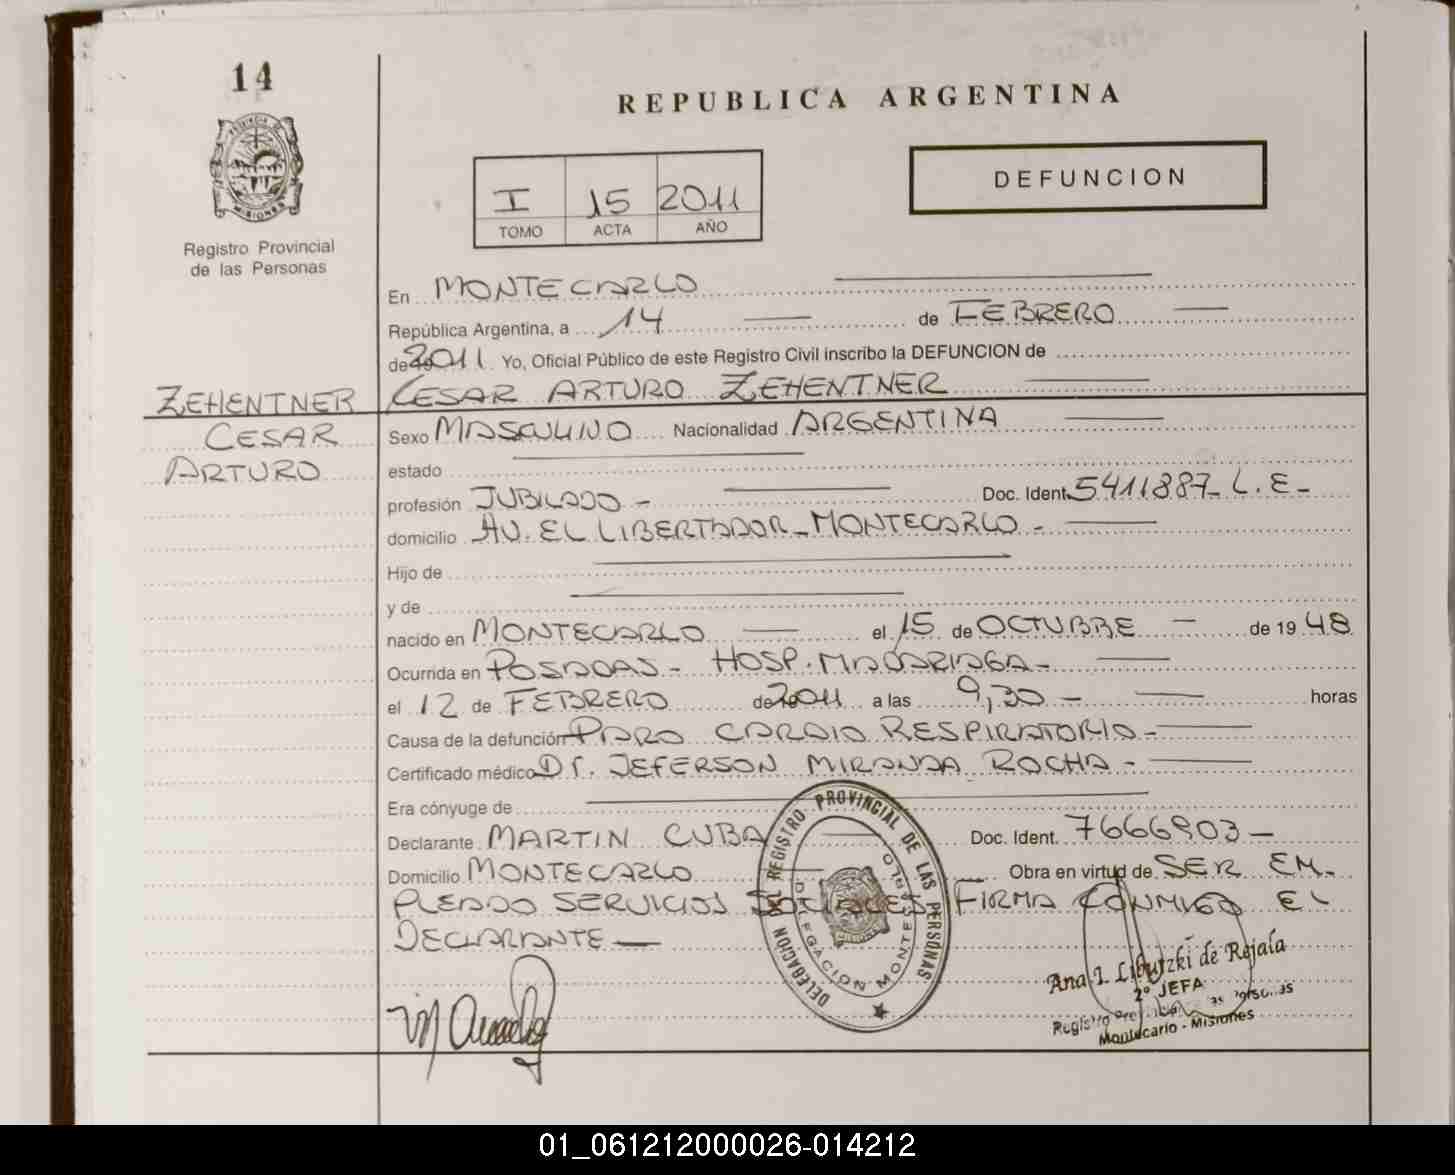 14
REPUBLICA ARGENTINA
PROVINCIA DE
MISIONES
Registro Provincial
de las Personas
I 15 2011
TOMO ACTA AÑO
DEFUNCION
En MONTECARLO
República Argentina, a 14 de FEBRERO
de 2011 Yo, Oficial Público de este Registro Civil inscribo la DEFUNCION de
ZEHENTNER CESAR ARTURO ZEHENTNER
CESAR Sexo MASCULINO Nacionalidad ARGENTINA
ARTURO estado
profesión JUBILADO - Doc. Ident. 5411887- L.E-
domicilio AV. EL LIBERTADOR - MONTECARLO -
Hijo de
y de
nacido en MONTECARLO — el 15 de OCTUBRE — de 19 48
Ocurrida en POSADAS - HOSP. MADARIAGA -
el 12 de FEBRERO de 2011 a las 9,30 - horas
Causa de la defunción PARO CARDIO RESPIRATORIO -
Certificado médico Dr. JEFERSON MIRANDA ROCHA -
Era cónyuge de
Declarante MARTIN CUBA Doc. Ident. 7666903 -
Domicilio MONTECARLO Obra en virtud de SER EM-
PLEADO SERVICIOS SOCIALES FIRMA CONMIGO EL
DECLARANTE —
DELEGACION DEL REGISTRO PROVINCIAL DE LAS PERSONAS
DELEGACION MONTECARLO
Ana I. Libutzki de Rejala
2º JEFA
Montecarlo - Misiones
01_061212000026-014212